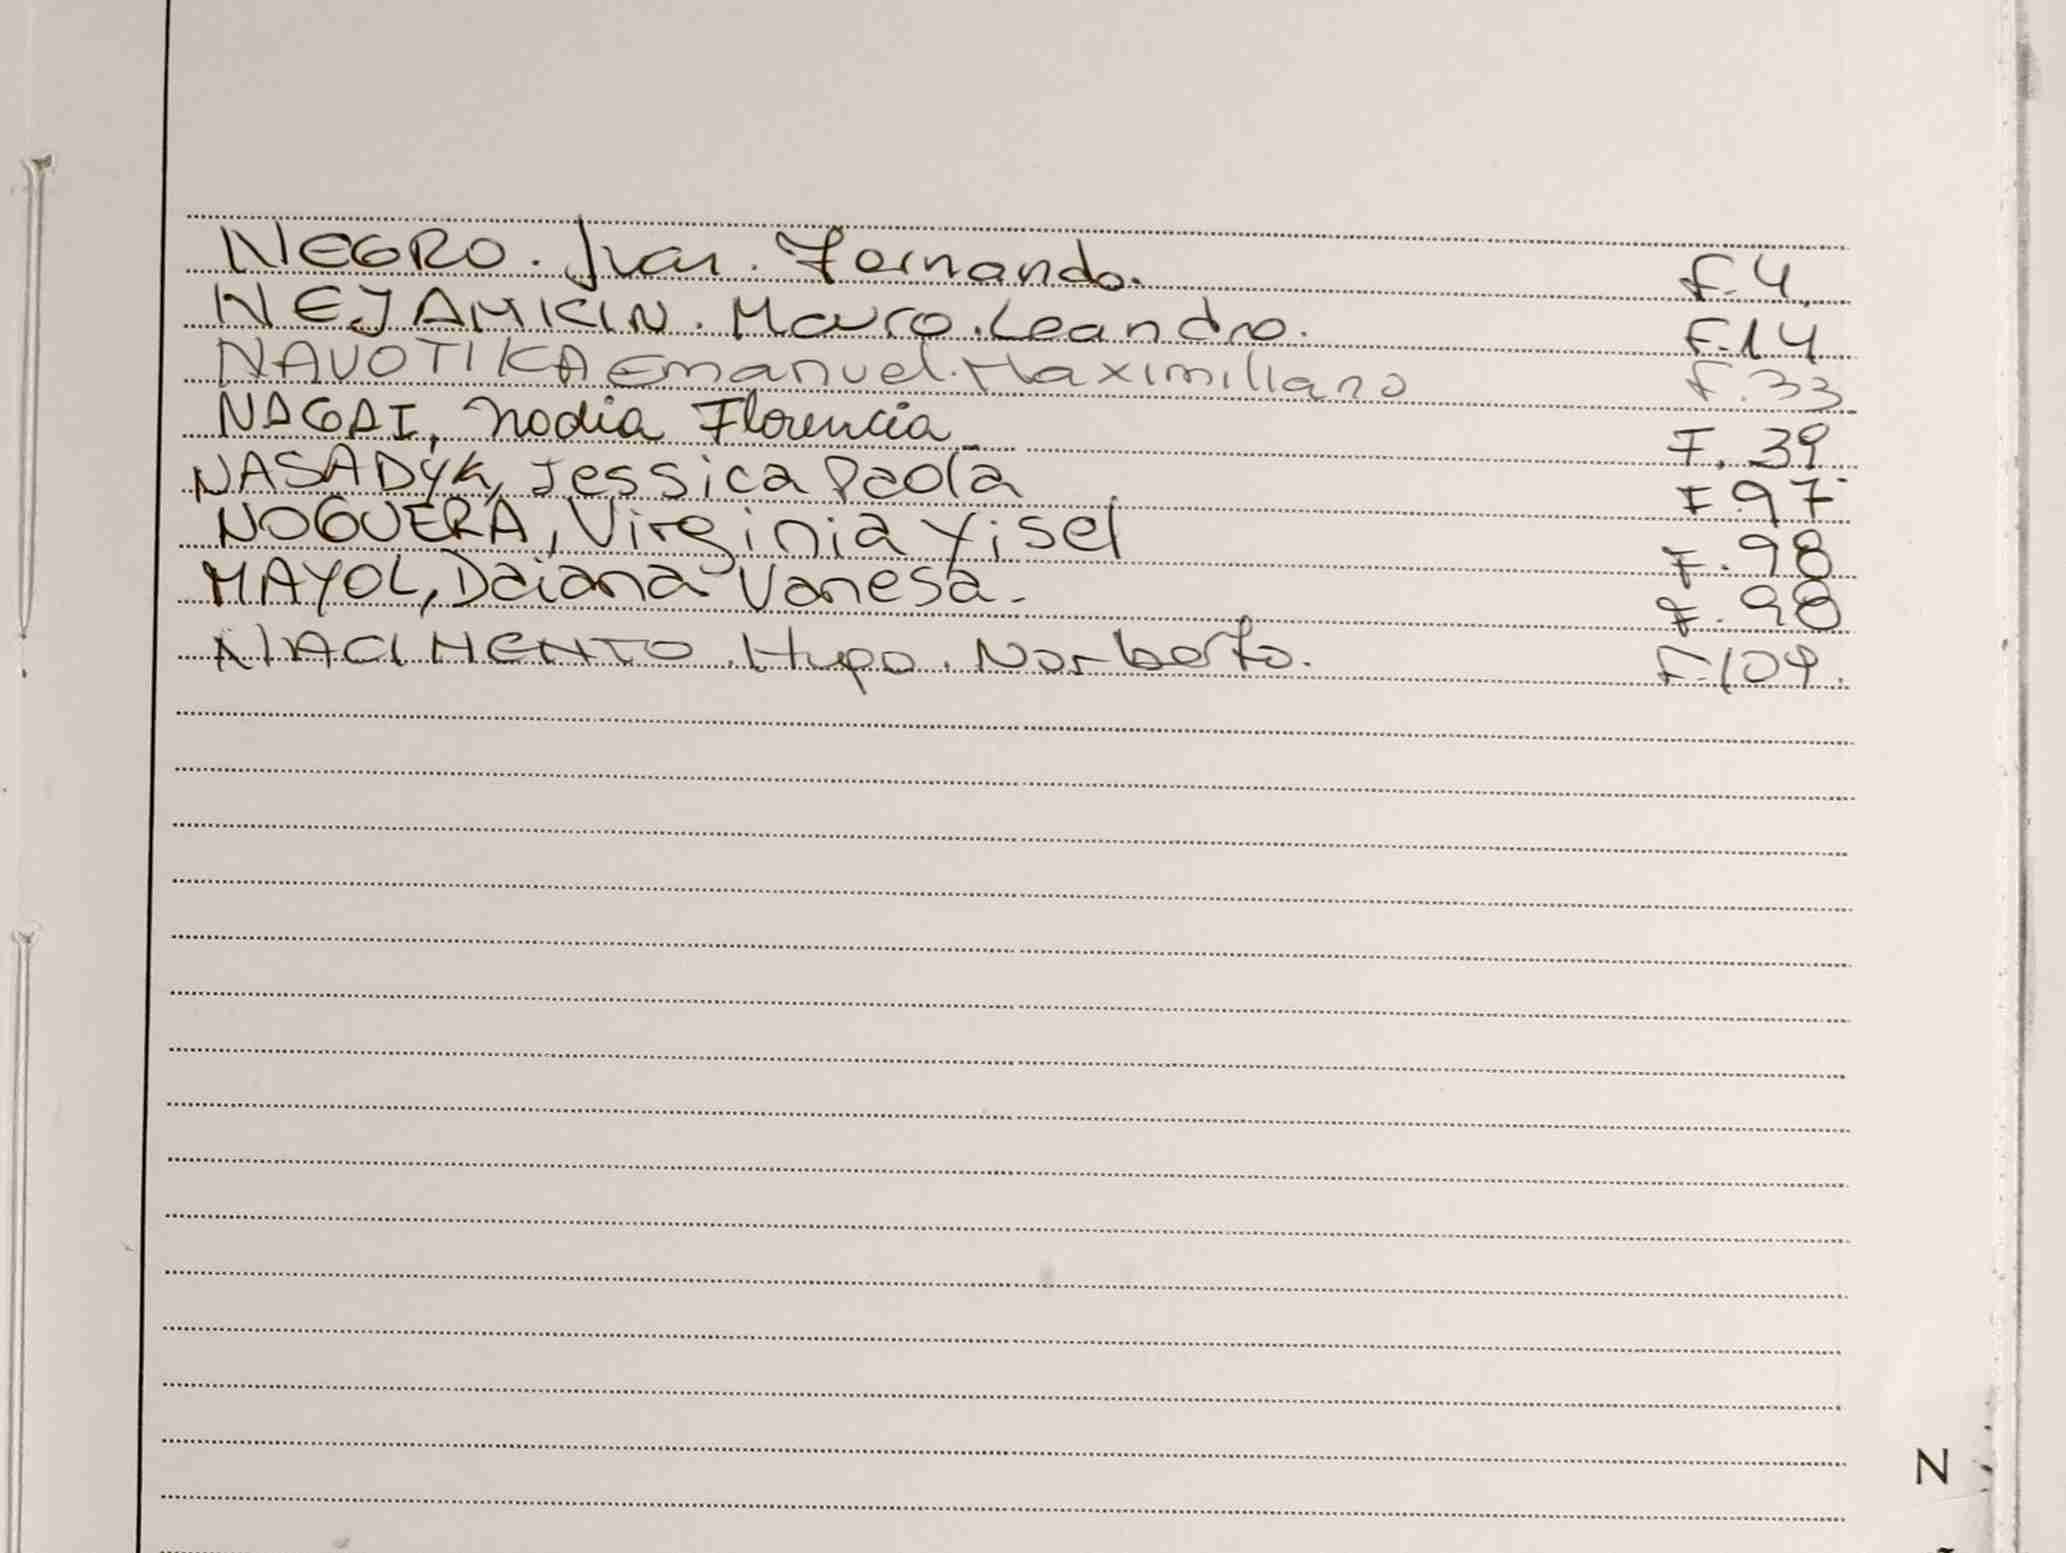 NEGRO. Juan. Fernando. F.4.
NEJAMKIN. Mauro. Leandro. F.14
NAVOTIKA Emanuel. Maximiliano F.33
NAGAI, Nadia Florencia F. 39
NASADYK, Jessica Paola F.97
NOGUERA, Virginia Yisel F.98
MAYOL, Daiana Vanesa. F.98
NACIMENTO. Hugo. Norberto. F.109.
N